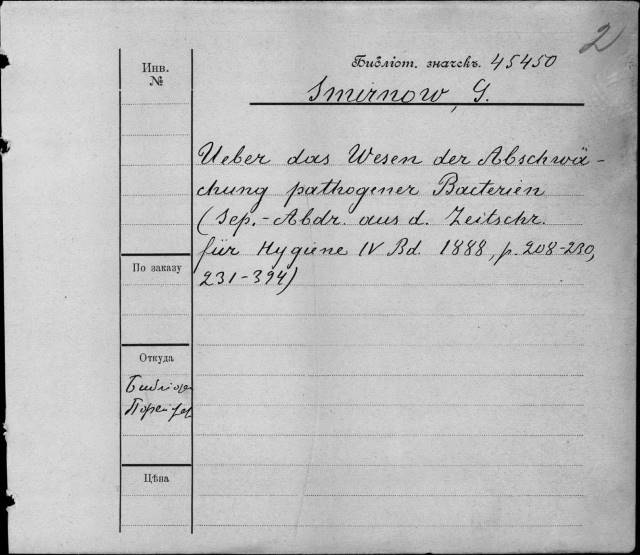 2
Инв.
№
Библіот. значекъ. 45450
Smirnow, G.
Ueber das Wesen der Abschwä-
chung pathogener Bacterien
(Sep.-Abdr. aus d. Zeitschr.
für Hygiene IV Bd. 1888, p. 208-230,
231-394)
По заказу
Откуда
Цѣна